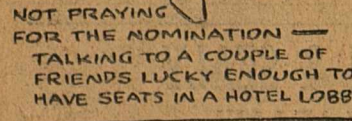 NOT PRAYING
FOR THE NOMINATION —
TALKING TO A COUPLE OF
FRIENDS LUCKY ENOUGH TO
HAVE SEATS IN A HOTEL LOBB